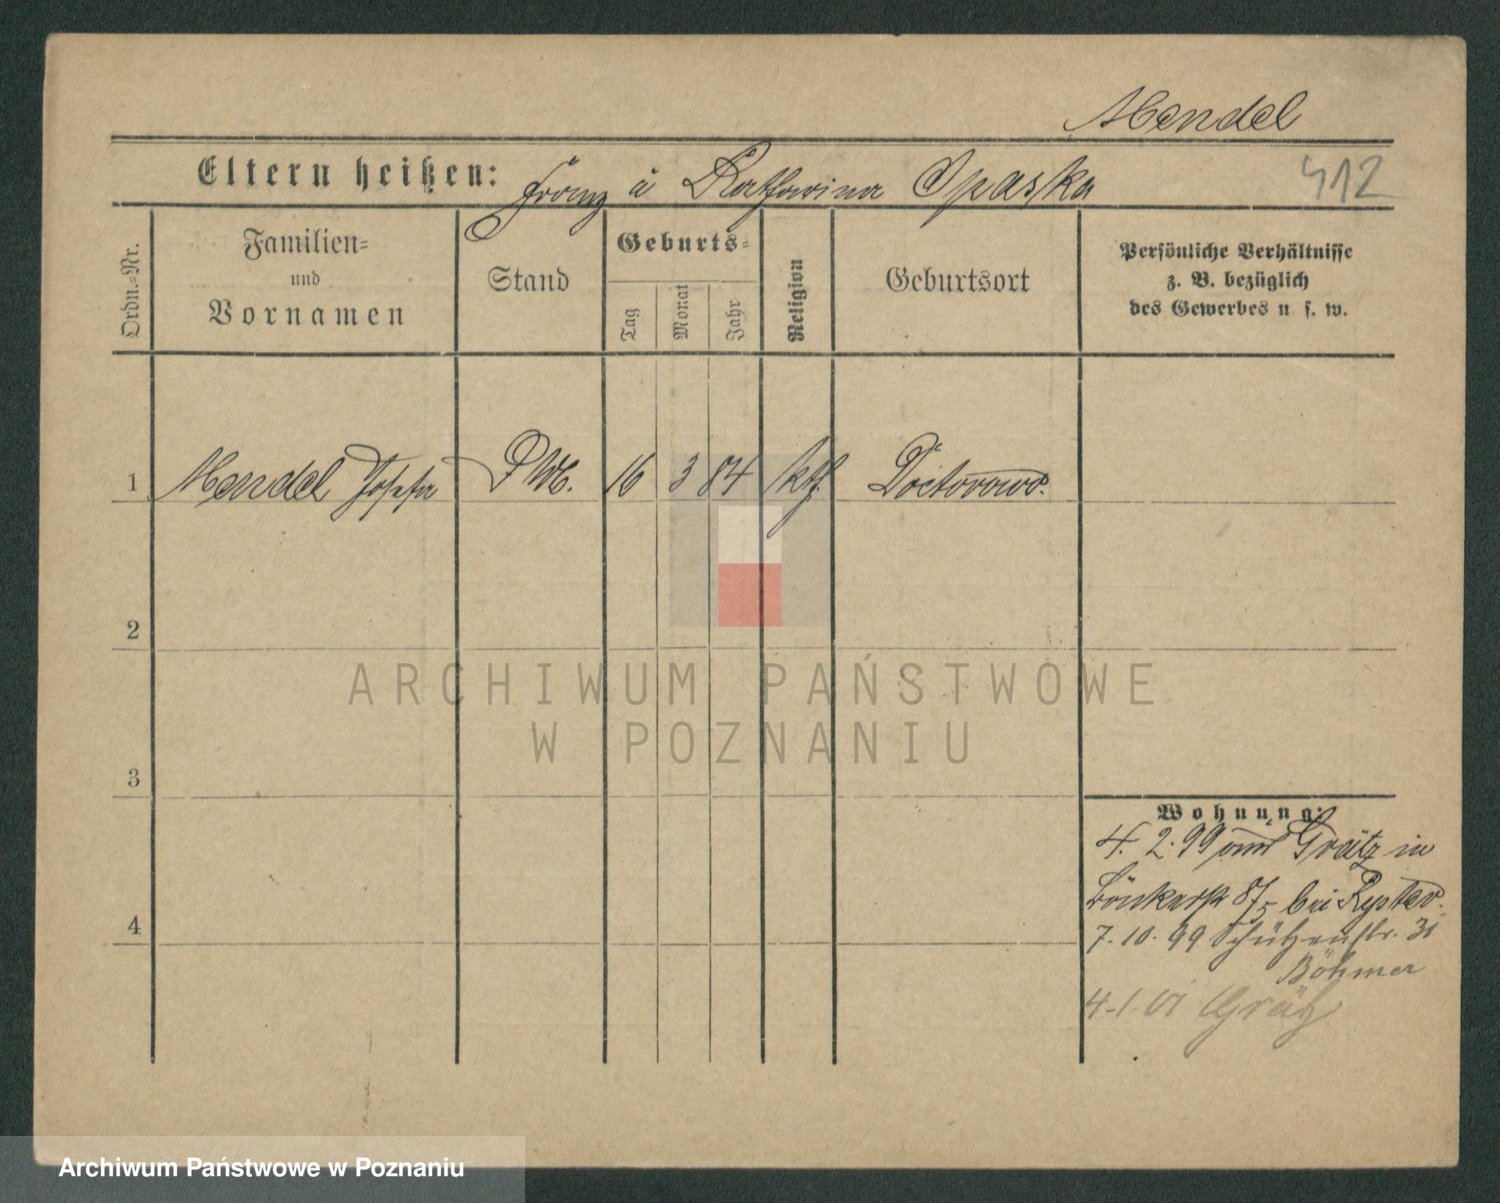 Mendel
Eltern heißen: Franz & Katharina Opaska
412
Ordn.-Nr.
Familien-
und
Vornamen
Stand
Geburts-
Tag
Monat
Jahr
Religion
Geburtsort
Persönliche Verhältnisse
z. B. bezüglich
des Gewerbes u. s. w.
1 Mendel Josefa 16 3 84 kth. Doctorowo.
2
3
4
Wohnung:
4. 2. 99 von Grätz in
8/5 bei
7. 10. 99 Schützenstr. 31
Böhmer
4-1.01 Grätz
ARCHIWUM PAŃSTWOWE
W POZNANIU
Archiwum Państwowe w Poznaniu